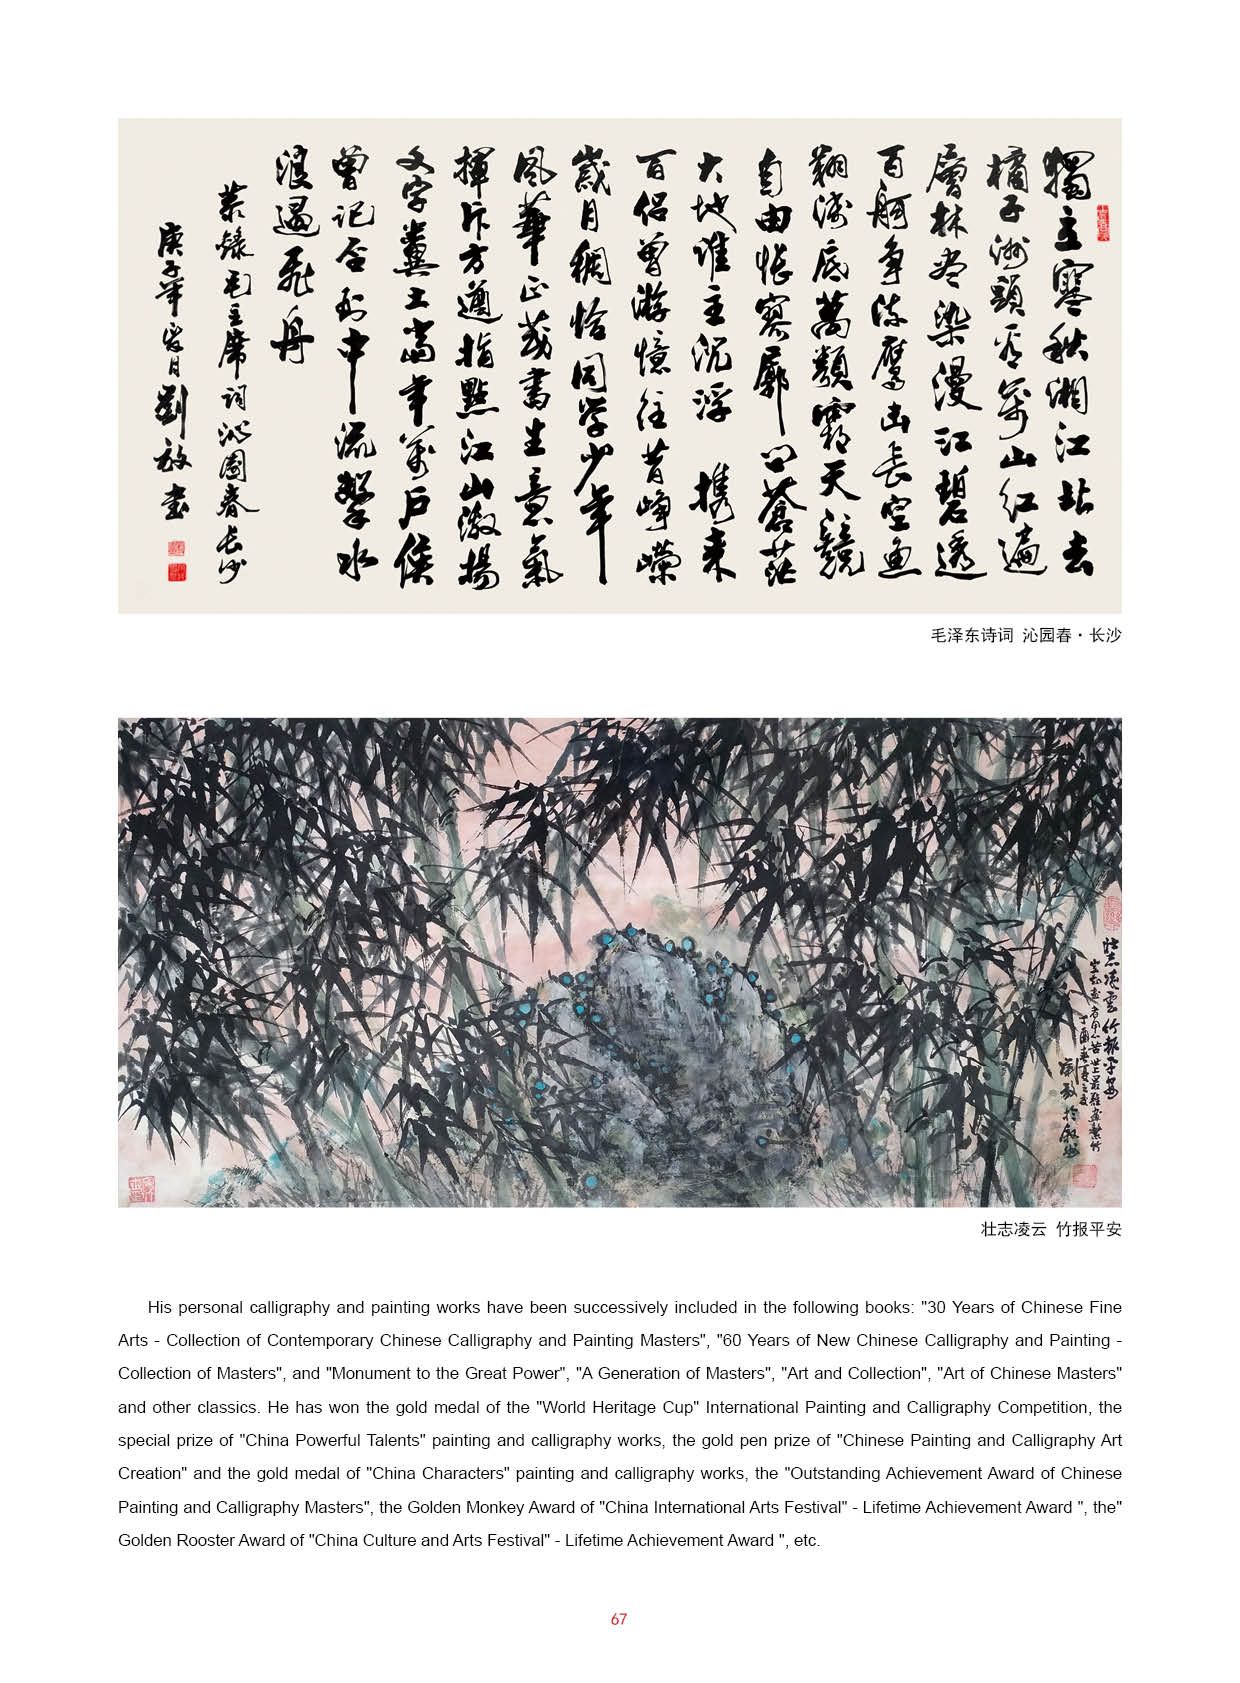 獨立寒秋湘江北去
橘子洲頭看萬山红遍
層林尽染漫江碧透
百舸争流鷹击長空魚
翔淺底萬類霜天競
自由悵寥廓问蒼茫
大地谁主沉浮 携来
百侣曾游憶往昔峥嶸
歲月稠恰同学少年
風華正茂書生意氣
揮斥方遒指點江山激揚
文字糞土當年萬户侯
曾记否到中流擊水
浪遏飛舟
恭錄毛主席词沁園春长沙
庚子年月劉放書
毛泽东诗词 沁园春·长沙
壮志凌雲竹報平安
苦世上最難畫繁竹
丁酉春夏之交
劉放於叙州
壮志凌云 竹报平安
His personal calligraphy and painting works have been successively included in the following books: "30 Years of Chinese Fine
Arts - Collection of Contemporary Chinese Calligraphy and Painting Masters", "60 Years of New Chinese Calligraphy and Painting -
Collection of Masters", and "Monument to the Great Power", "A Generation of Masters", "Art and Collection", "Art of Chinese Masters"
and other classics. He has won the gold medal of the "World Heritage Cup" International Painting and Calligraphy Competition, the
special prize of "China Powerful Talents" painting and calligraphy works, the gold pen prize of "Chinese Painting and Calligraphy Art
Creation" and the gold medal of "China Characters" painting and calligraphy works, the "Outstanding Achievement Award of Chinese
Painting and Calligraphy Masters", the Golden Monkey Award of "China International Arts Festival" - Lifetime Achievement Award ", the"
Golden Rooster Award of "China Culture and Arts Festival" - Lifetime Achievement Award ", etc.
67